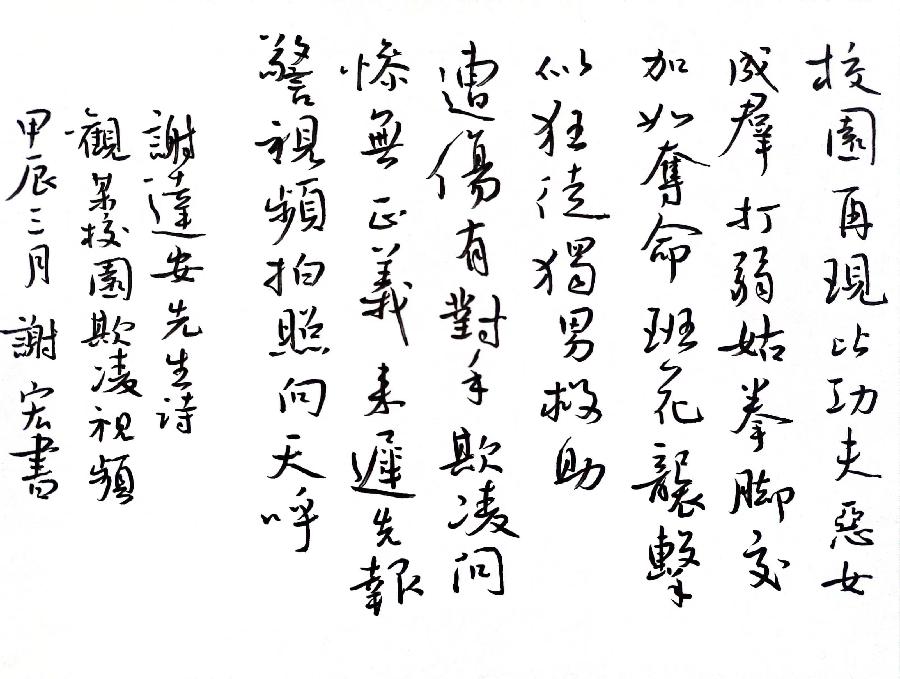 校園再現比功夫惡女
成羣打弱姑拳脚交
加如奪命班花襲擊
似狂徒獨男救助
遭傷有對手欺凌问
慘無正義来遲先報
警視頻拍照问天呼
謝達安先生詩
觀某校園欺凌視頻
甲辰三月謝宏書